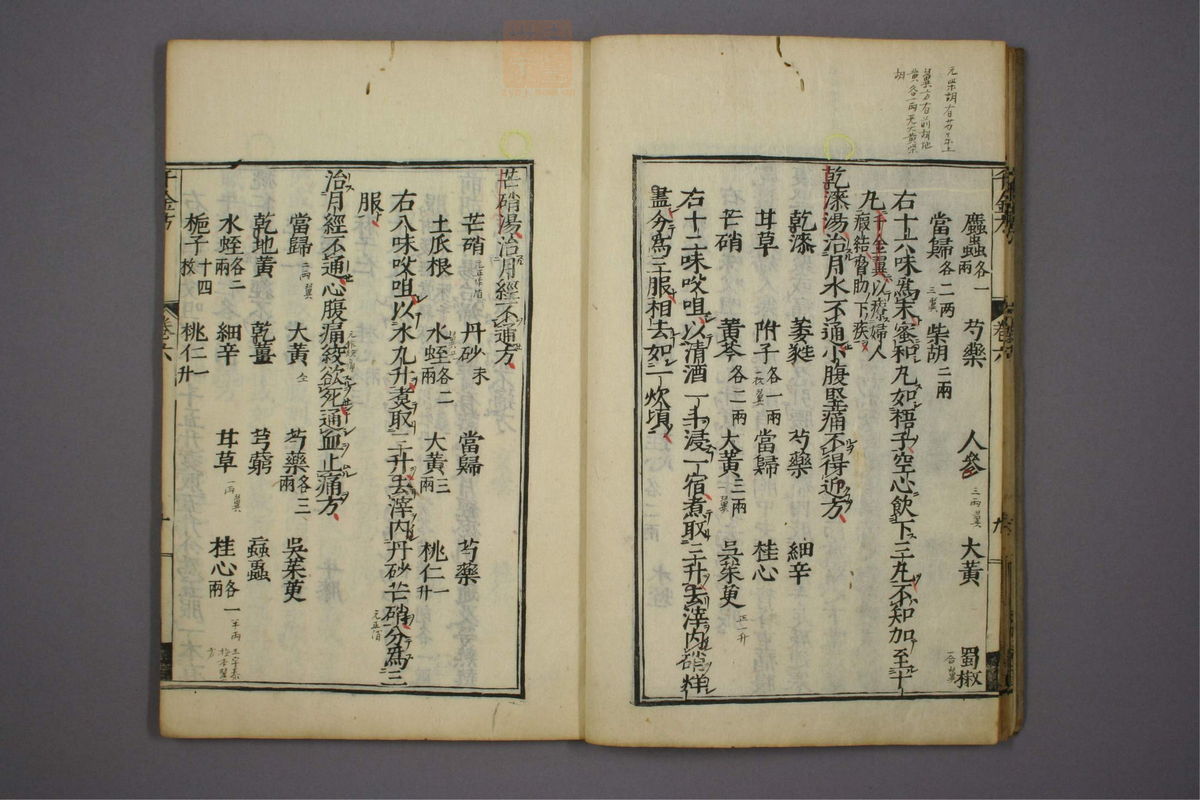 千金方
卷六
九
䗪蟲各一兩 芍藥 人參 大黃 蜀椒
當歸各二兩 柴胡二兩
右十六味爲末蜜和丸如梧子空心飲下三丸不知加至十
丸千金翼以療婦人瘕結脅肋下疾
乾漆湯治月水不通小腹堅痛不得近方
乾漆 萎蕤 芍藥 細辛
甘草 附子各一兩 當歸 桂心
芒硝 黃芩各二兩 大黃三兩 吳茱萸
右十二味㕮咀以清酒一斗浸一宿煮取三升去滓內硝烊
盡分爲三服相去如一炊頃
芒硝湯治月經不通方
芒硝 丹砂末 當歸 芍藥
土瓜根 水蛭各二兩 大黃三兩 桃仁一升
右八味㕮咀以水九升煮取三升去滓內丹砂芒硝分爲三
服
治月經不通心腹痛絞欲死通血止痛方
當歸 大黃 芍藥各三兩 吳茱萸
乾地黃 乾薑 芎藭 䖟蟲
水蛭各二兩 細辛 甘草 桂心各一兩
梔子十四枚 桃仁一升
千金方
卷六